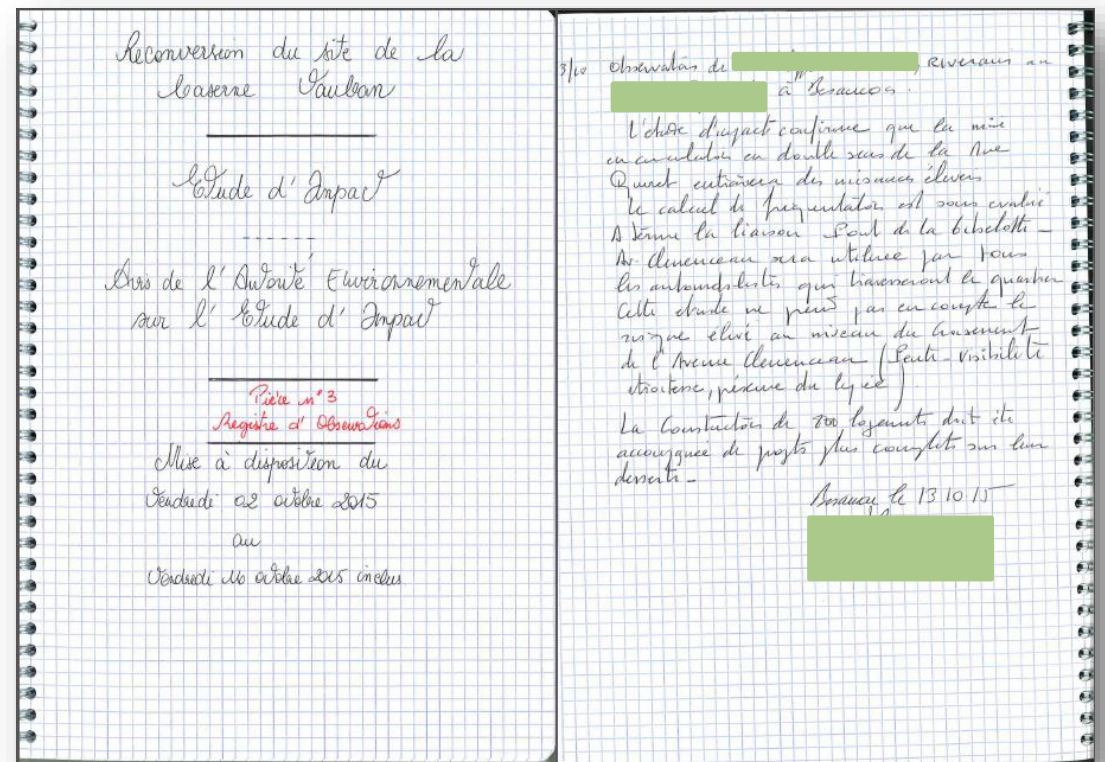 Reconversion du site de la
Caserne Vauban
Etude d'Impact
Avis de l'Autorité Environnementale
sur l'Etude d'Impact
Pièce n°3
Registre d'Observations
Mise à disposition du
Vendredi 02 octobre 2015
au
Vendredi 16 octobre 2015 inclus
Observation de , Riverain au
à Besancon.
L'étude d'impact confirme que la mise
en circulation en double sens de la rue
Quinet entrainera des nuisances élevées
Le calcul de frequentation est sous evalué
A terme la liaison Pont de la bibelotte -
Av. Clemenceau sera utilisée par tous
les automobilistes qui traverseront le quartier
Cette etude ne prend pas en compte le
risque élevé au niveau du croisement
de l'Avenue Clemenceau (Pente - visibilité
étroitesse, présence du lycée)
La Construction de logements doit être
accompagnée de projets plus complets sur leur
desserte -
Besancon le 13 10 15